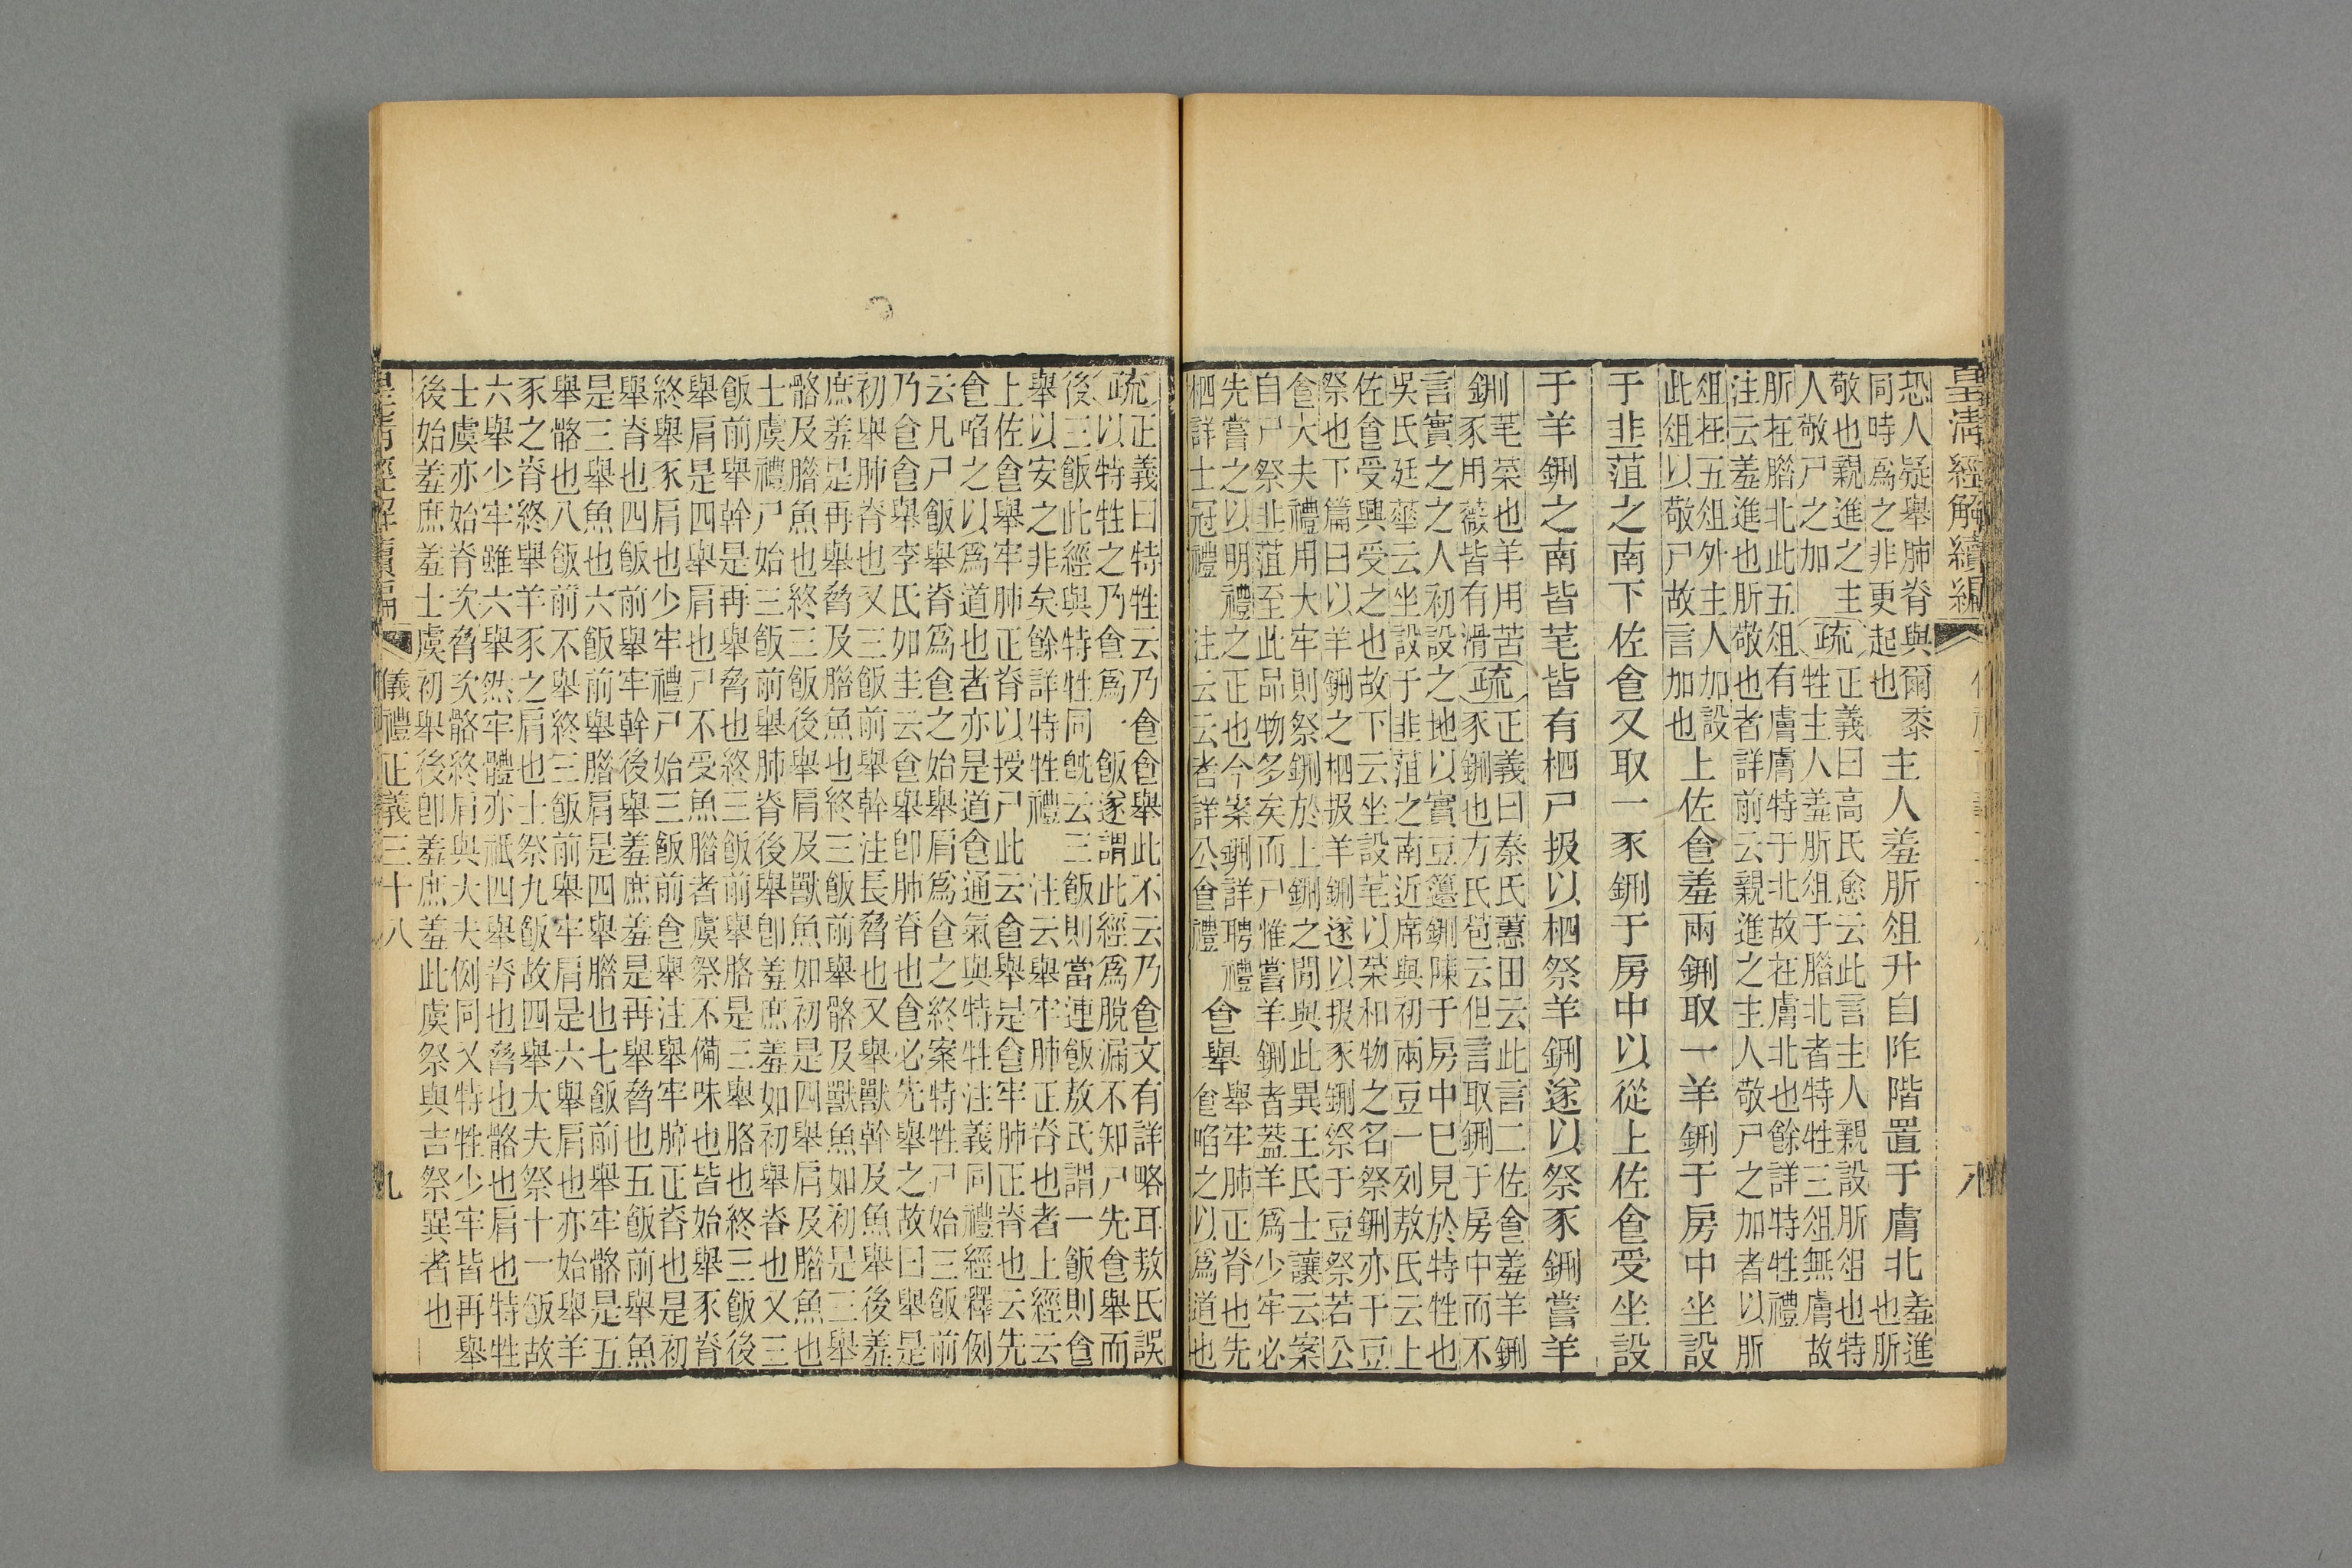 皇淸經解續編
恐人疑舉肺脊與爾黍
同時爲之非更起也
主人羞肵俎升自阼階置于膚北
羞進
也肵
敬也親進之主
人敬尸之加
疏
正義曰高氏愈云此言主人親設肵俎也特
牲主人羞肵俎于腊北者特牲三俎無膚故
肵在腊北此五俎有膚膚特于北故在膚北也餘詳特牲禮
注云羞進也肵敬也者詳前云親進之主人敬尸之加者以肵
俎在五俎外主人加設
此俎以敬尸故言加也
上佐食羞兩鉶取一羊鉶于房中坐設
于韭菹之南下佐食又取一豕鉶于房中以從上佐食受坐設
于羊鉶之南皆芼皆有柶尸扱以柶祭羊鉶遂以祭豕鉶嘗羊
鉶
芼菜也羊用苦
豕用薇皆有滑
疏
正義曰秦氏蕙田云此言二佐食羞羊鉶
豕鉶也方氏苞云但言取鉶于房中而不
言實之之人初設之地以實豆籩鉶陳于房中已見於特牲也
吳氏廷華云坐設于韭菹之南近席與初兩豆一列敖氏云上
佐食受興受之也故下云坐設芼以菜和物之名祭鉶亦于豆
祭也下篇曰以羊鉶之柶扱羊鉶遂以扱豕鉶祭于豆祭若公
食大夫禮用大牢則祭鉶於上鉶之閒與此異王氏士讓云案
自尸祭韭菹至此品物多矣而尸惟嘗羊鉶者蓋羊爲少牢必
先嘗之以明禮之正也今案鉶詳聘禮
柶詳士冠禮 注云云者詳公食禮
食舉
舉牢肺正脊也先
食啗之以爲道也
疏
正義曰特牲云乃食食舉此不云乃食文有詳略耳敖氏誤
以特牲之乃食爲一飯遂謂此經爲脫漏不知尸先食舉而
後三飯此經與特牲同旣云三飯則當連飯敖氏謂一飯則食
舉以安之非矣餘詳特牲禮 注云舉牢肺正脊也者上經云
上佐食舉牢肺正脊以授尸此云食舉是食牢肺正脊也云先
食啗之以爲道也者亦是道食通氣與特牲注義同禮經釋例
云凡尸飯舉脊爲食之始舉肩爲食之終案特牲尸始三飯前
乃食食舉李氏如圭云食舉卽肺脊也食必先舉之故曰舉是
初舉肺脊也又三飯前舉幹注長脅也又舉獸幹及魚舉後羞
庶羞是再舉脅及腊魚也終三飯前舉骼及獸魚如初是三舉
骼及腊魚也終三飯後舉肩及獸魚如初是四舉肩及腊魚也
士虞禮尸始三飯前舉肺脊後舉卽羞庶羞如初舉脊也又三
飯前舉幹是再舉脅也終三飯前舉胳是三舉胳也終三飯後
舉肩是四舉肩也尸不受魚腊者虞祭不備味也皆始舉豕脊
終舉豕肩也少牢禮尸始三飯前食舉注舉牢肺正脊也是初
舉脊也四飯前舉牢幹後舉羞庶羞是再舉脅也五飯前舉魚
是三舉魚也六飯前舉腊肩是四舉腊也七飯前舉牢骼是五
舉骼也八飯前不舉終三飯前舉牢肩是六舉肩也亦始舉羊
豕之脊終舉羊豕之肩也士祭九飯故四舉大夫祭十一飯故
六舉少牢雖六舉然牢體亦祗四舉脊也脅也骼也肩也特牲
士虞亦始脊次脅次骼終肩與大夫例同又特牲少牢皆再舉
後始羞庶羞士虞初舉後卽羞庶羞此虞祭與吉祭異者也
皇淸經解續編
儀禮正義三十八
九